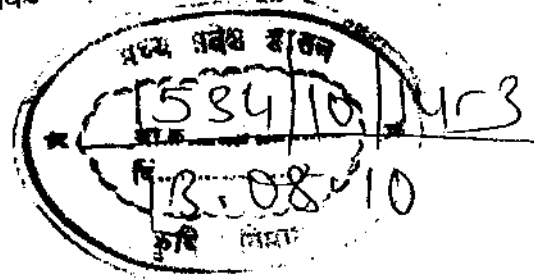 मध्य प्रदेश शासन
1534/10/14-3
क्रमांक
दि.
13.08.10
कृषि विभाग